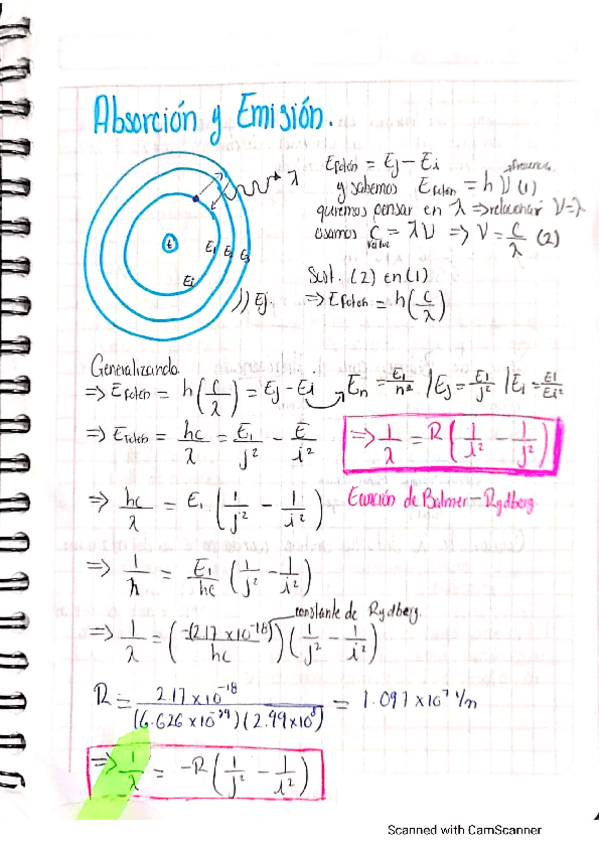 Absorción y Emisión.
Efotón = Ej − Ei
frecuencia
y sabemos Efotón = h ν (1)
queremos pensar en λ ⇒ relacionar ν = λ
usamos C = λν ⇒ ν = c/λ (2)
λ
t
E1 E2 E3
Ei
)) Ej
Sust. (2) en (1)
⇒ Efotón = h(c/λ)
Generalizando
⇒ Efotón = h(c/λ) = Ej − Ei En = E1/n² / Ej = E1/j² / Ei = E1/Ei²
⇒ Efotón = hc/λ = E1/j² − E/i²
⇒ 1/λ = R(1/i² − 1/j²)
⇒ hc/λ = E1 (1/j² − 1/i²)
Ecuación de Balmer – Rydberg
⇒ 1/λ = E1/hc (1/j² − 1/i²)
constante de Rydberg.
⇒ 1/λ = (−(2.17 x10⁻¹⁸)/hc)(1/j² − 1/i²)
R = 2.17 x10⁻¹⁸/(6.626 x10⁻³⁴)(2.99 x10⁸) = 1.097 x10⁷ 1/m
⇒ 1/λ = −R(1/j² − 1/i²)
Scanned with CamScanner